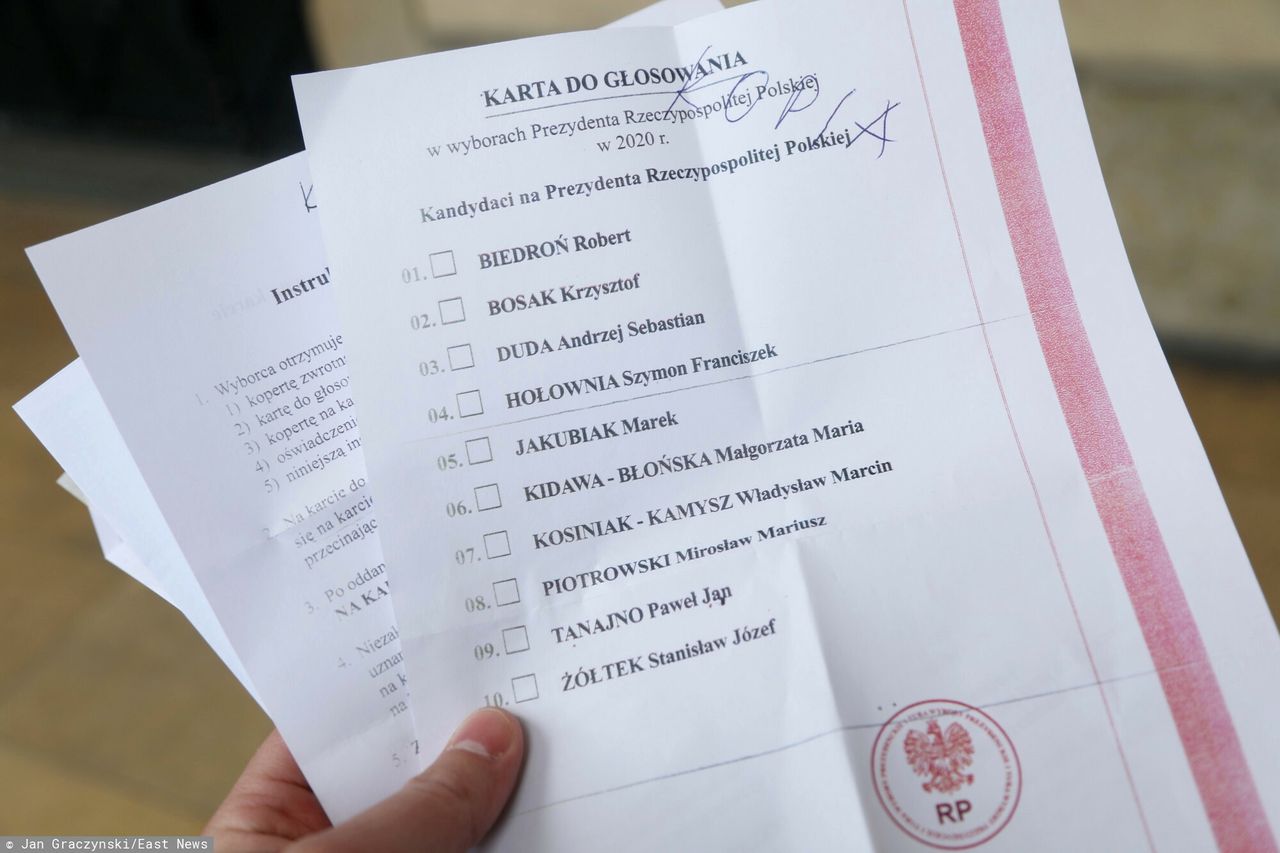 KARTA DO GŁOSOWANIA
KOPIA
w wyborach Prezydenta Rzeczypospolitej Polskiej
w 2020 r.
Kandydaci na Prezydenta Rzeczypospolitej Polskiej
01. BIEDROŃ Robert
02. BOSAK Krzysztof
03. DUDA Andrzej Sebastian
04. HOŁOWNIA Szymon Franciszek
05. JAKUBIAK Marek
06. KIDAWA - BŁOŃSKA Małgorzata Maria
07. KOSINIAK - KAMYSZ Władysław Marcin
08. PIOTROWSKI Mirosław Mariusz
09. TANAJNO Paweł Jan
10. ŻÓŁTEK Stanisław Józef
RP
K
Instru
1. Wyborca otrzymuje
1) kopertę zwrotn
2) kartę do głoso
3) kopertę na ka
4) oświadczeni
5) niniejszą ins
2. Na karcie do
się na karcie
przecinając
3. Po oddan
NA KA
4. Niezal
uznan
na k
na
5. Z
© Jan Graczynski/East News